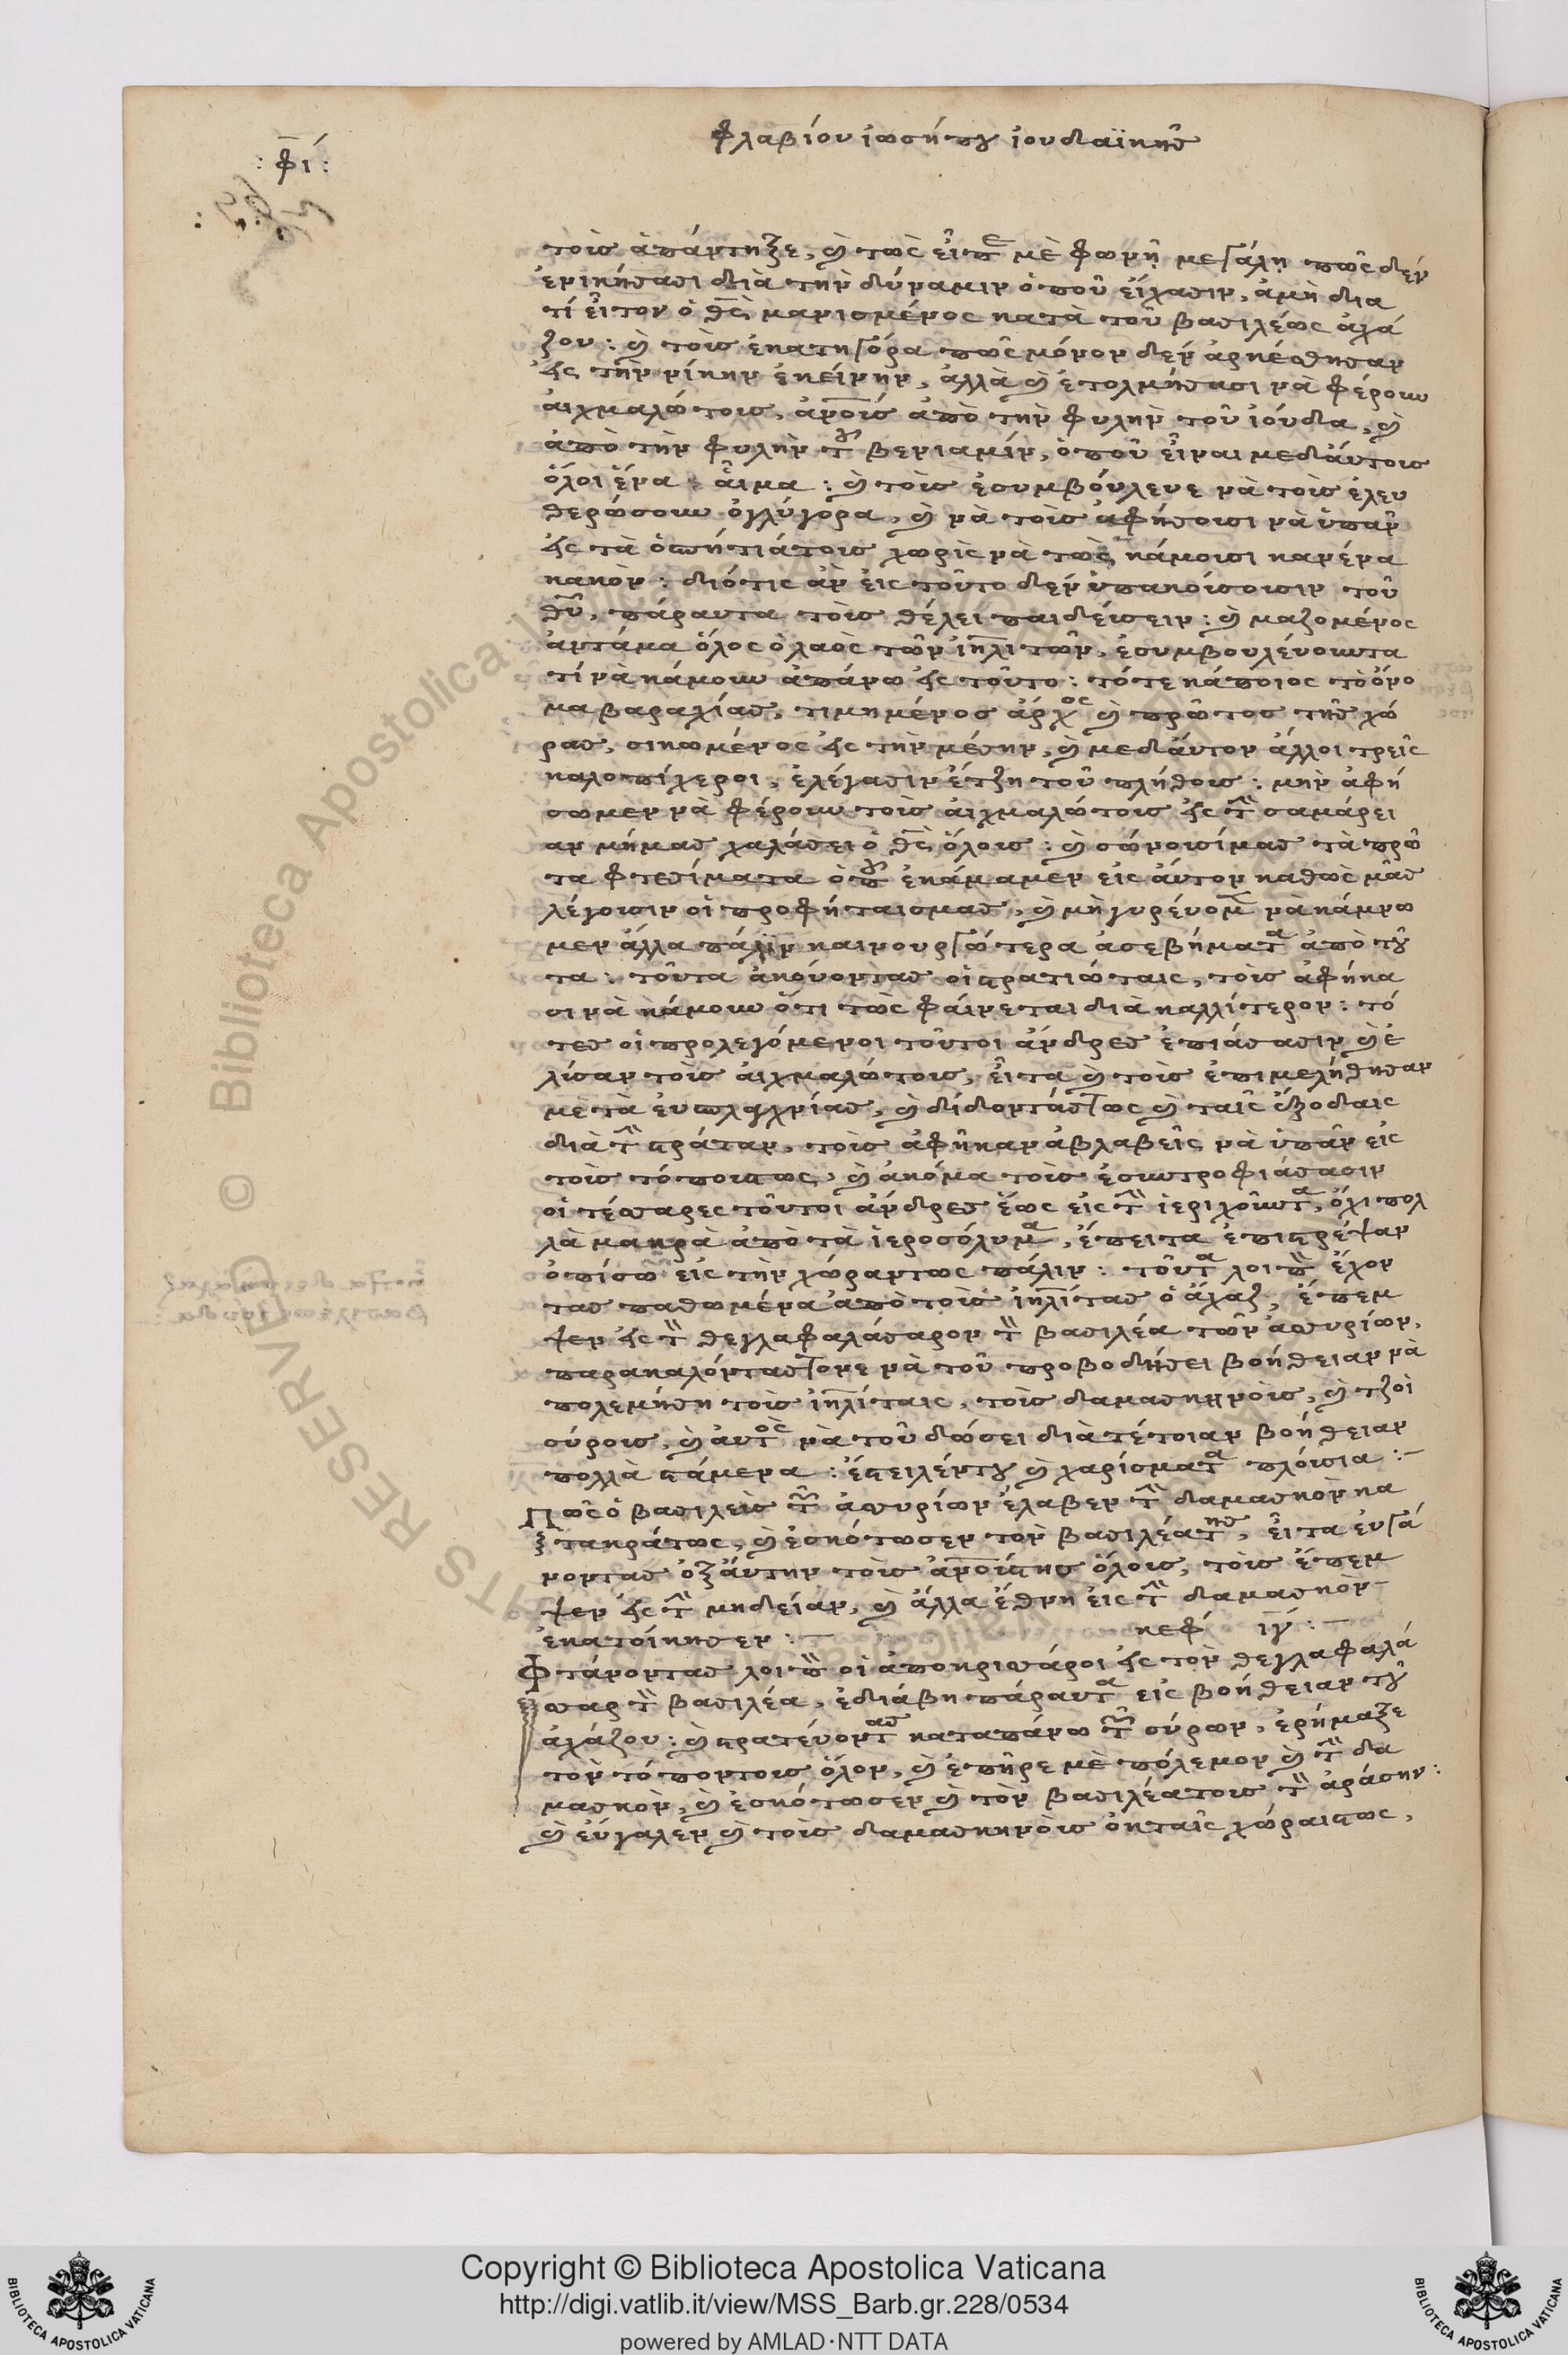 φλαβίου ἰωσήπου ἰουδαϊκῆς
:φί:
τοὺς ἀπάντηξε, καὶ τως εἶπε μὲ φωνῇ μεγάλῃ πῶς δὲν
ἐνικήσασι διὰ τὴν δύναμιν ὁποῦ εἴχασιν, ἀμὴ δια
τί εἶτον ὁ θς μανισμένος κατὰ τοῦ βασιλέως ἀχά
ζου: καὶ τοὺς ἐκατηγόρα πῶς μόνον δὲν ἀρκέσθησαν
εἰς τὴν νίκην ἐκείνην, ἀλλὰ καὶ ἐτολμήσασι νὰ φέρουν
αἰχμαλώτους, ἀνοὺς ἀπὸ τὴν φυλὴν τοῦ ἰούδα, καὶ
ἀπὸ τὴν φυλὴν τοῦ βενιαμίν, ὁποῦ εἶναι μεδἄυτους
ὅλοι ἕνα αἷμα: καὶ τοὺς ἐσυμβούλευε νὰ τοὺς ἐλευ
θερώσουν ὀγλύγορα, καὶ νὰ τοὺς ἀφήσουσι νὰ ὑπᾶν
εἰς τὰ ὀσπήτιάτους χωρὶς νὰ τως κάμουσι κανένα
κακὸν: διότις ἂν εἰς τοῦτο δὲν ὑπακούσουσιν τοῦ
θῦ, πάραυτα τοὺς θέλει παιδεύσειν: καὶ μαζομένος
ἀντάμα ὅλος ὁ λαὸς τῶν ἰηλιτῶν, ἐσυμβουλεύουντα
τί νὰ κάμουν ἀπάνω εἰς τοῦτο: τότε κάποιος τὸ ὄνο
μα βαραχίας, τιμημένος ἄρχος καὶ πρῶτος τῆς χώ
ρας, σικωμένος εἰς τὴν μέσην, καὶ μεδἄυτον ἄλλοι τρεῖς
καλοπίχεροι, ἐλέγασιν ἔτζη τοῦ πλήθους: μὴν ἀφή
σωμεν νὰ φέρουν τοὺς αἰχμαλώτους εἰς τὴν σαμάρει
αν μήμας χαλάσει ὁ θς ὅλους: καὶ σώνουσίμας τὰ πρῶ
τα φτεσίματα ὁποῦ ἐκάμαμεν εἰς ἀυτον καθὼς μᾶς
λέγουσιν οἱ προφήταισμας, καὶ μὴ γυρένομε νὰ κάμνω
μεν ἄλλα πάλιν καινουργώτερα ἀσεβήματα ἀπὸ τοῦ
τα: τοῦτα ἀκούοντας οἱ στρατιώταις, τοὺς ἀφήκα
σι νὰ κάμουν ὅτι τως φάινεται διὰ καλλίτερον: τό
τες οἱ προλεγόμενοι τοῦτοι ἄνδρες ἐπιάσασιν καὶ ἐ
λύσαν τοὺς αἰχμαλώτους, εἶτα καὶ τοὺς ἐπιμελήθησαν
μὲ τὰ ἐυσπλαχνίας, καὶ δίδοντάς τως καὶ ταῖς ἐξοδαις
διὰ τὴν στράταν, τοὺς ἀφῆκαν ἀβλαβεῖς νὰ ὑπᾶν εἰς
τοὺς τόπουςτως, καὶ ἀκόμα τοὺς ἐσυντροφιάσασιν
οἱ τέσσαρες τοῦτοι ἄνδρες ἕως εἰς τὴν ἱεριχοῦντα, ὄχι πολ
λὰ μακρὰ ἀπὸ τὰ ἱεροσόλυμα, ἔπειτα ἐπιστρέψαν
ὀπίσω εἰς τὴν χώραντως πάλιν: τοῦτα λοιπὸν ἔχον
τας παθωμένα ἀπὸ τοὺς ἰηλίτας ὁ ἄχαζ, ἔπεμ
ψεν εἰς τὸν θεγλαφαλάσαρον τὸν βασιλέα τῶν ἀσσυρίων,
παρακαλόντας τονε νὰ τοῦ προβοδήσει βοήθειαν νὰ
πολεμήση τοὺς ἰηλίταις, τοὺς δαμασκηνοὺς, καὶ τζοὶ
σύρους, καὶ ἀυτος νὰ τοῦ δώσει διὰ τέτοιαν βοήθειαν
πολλὰ στάμενα: ἐστειλέντου καὶ χαρίσματα πλούσια:
Πῶς ὁ βασιλεὺς τῶν ἀσσυρίων ἔλαβεν τὴν δαμασκὸν κα
τακράτως, καὶ ἐσκότωσεν τὸν βασιλέατης, εἶτα ἐυγά
νοντας ὀξἄυτην τοὺς ἀνούςτης ὅλους, τοὺς ἔπεμ
ψεν εἰς τὴν μηδείαν, καὶ ἄλλα ἔθνη εἰς τὴν δαμασκὸν
ἐκατοίκησεν: κεφ ιγ:
Φτάνοντας λοιπὸν οἱ ἀποκρισάροι εἰς τὸν θεγλαφαλά
σσαρ τὸν βασιλέα, ἐδιάβη πάραυτα εἰς βοήθειαν τοῦ
ἀχάζου: καὶ στρατέυοντας καταπάνω τῶν σύρων, ἐρήμαξε
τὸν τόποντους ὅλον, καὶ ἐπῆρε μὲ πόλεμον καὶ τὴν δα
μασκὸν, καὶ ἐσκότωσεν καὶ τὸν βασιλέατους τὸν ἀράσην:
καὶ ἐύγαλεν καὶ τοὺς δαμασκηνοὺς ὀκταῖς χώραιςτως,
Copyright © Biblioteca Apostolica Vaticana
http://digi.vatlib.it/view/MSS_Barb.gr.228/0534
powered by AMLAD·NTT DATA